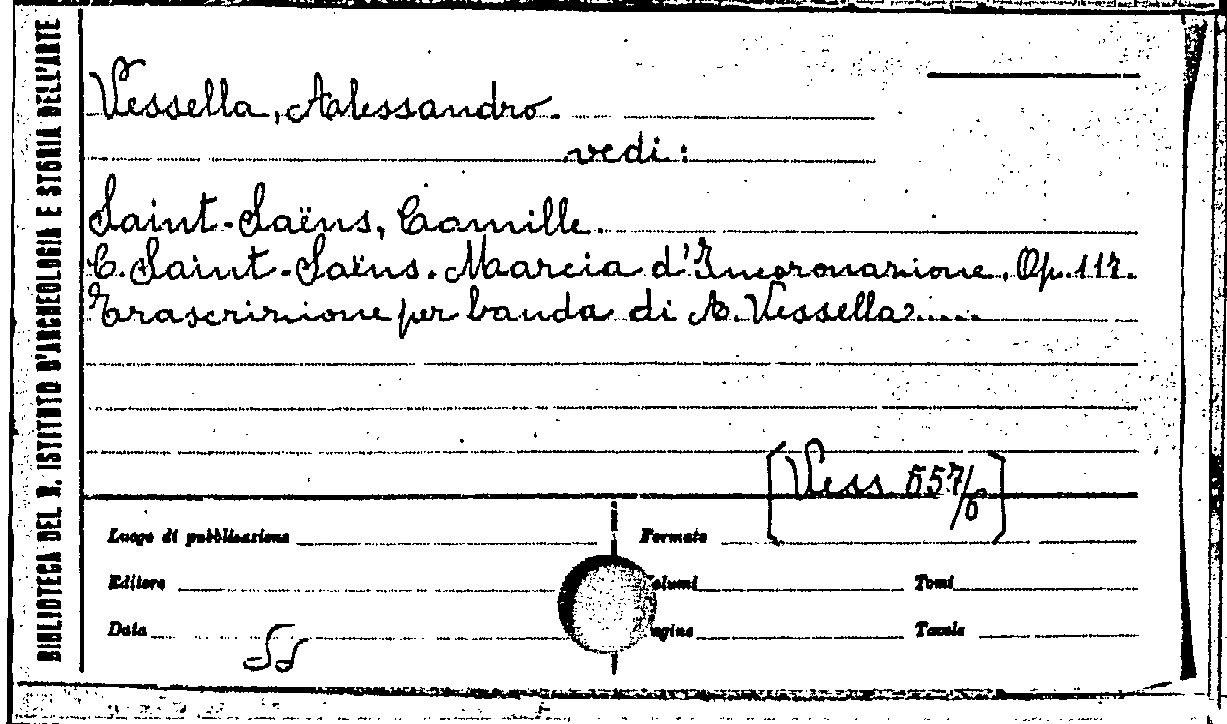 BIBLIOTECA DEL R. ISTITUTO D'ARCHEOLOGIA E STORIA DELL'ARTE
Vessella, Alessandro.
vedi:
Saint-Saëns, Camille.
C. Saint-Saëns. Marcia d'Incoronazione. Op. 117.
Trascrizione per banda di A. Vessella.....
[Vess. 557/6]
Luogo di pubblicazione Formato
Editore Volumi Tomi
Data Pagine Tavole